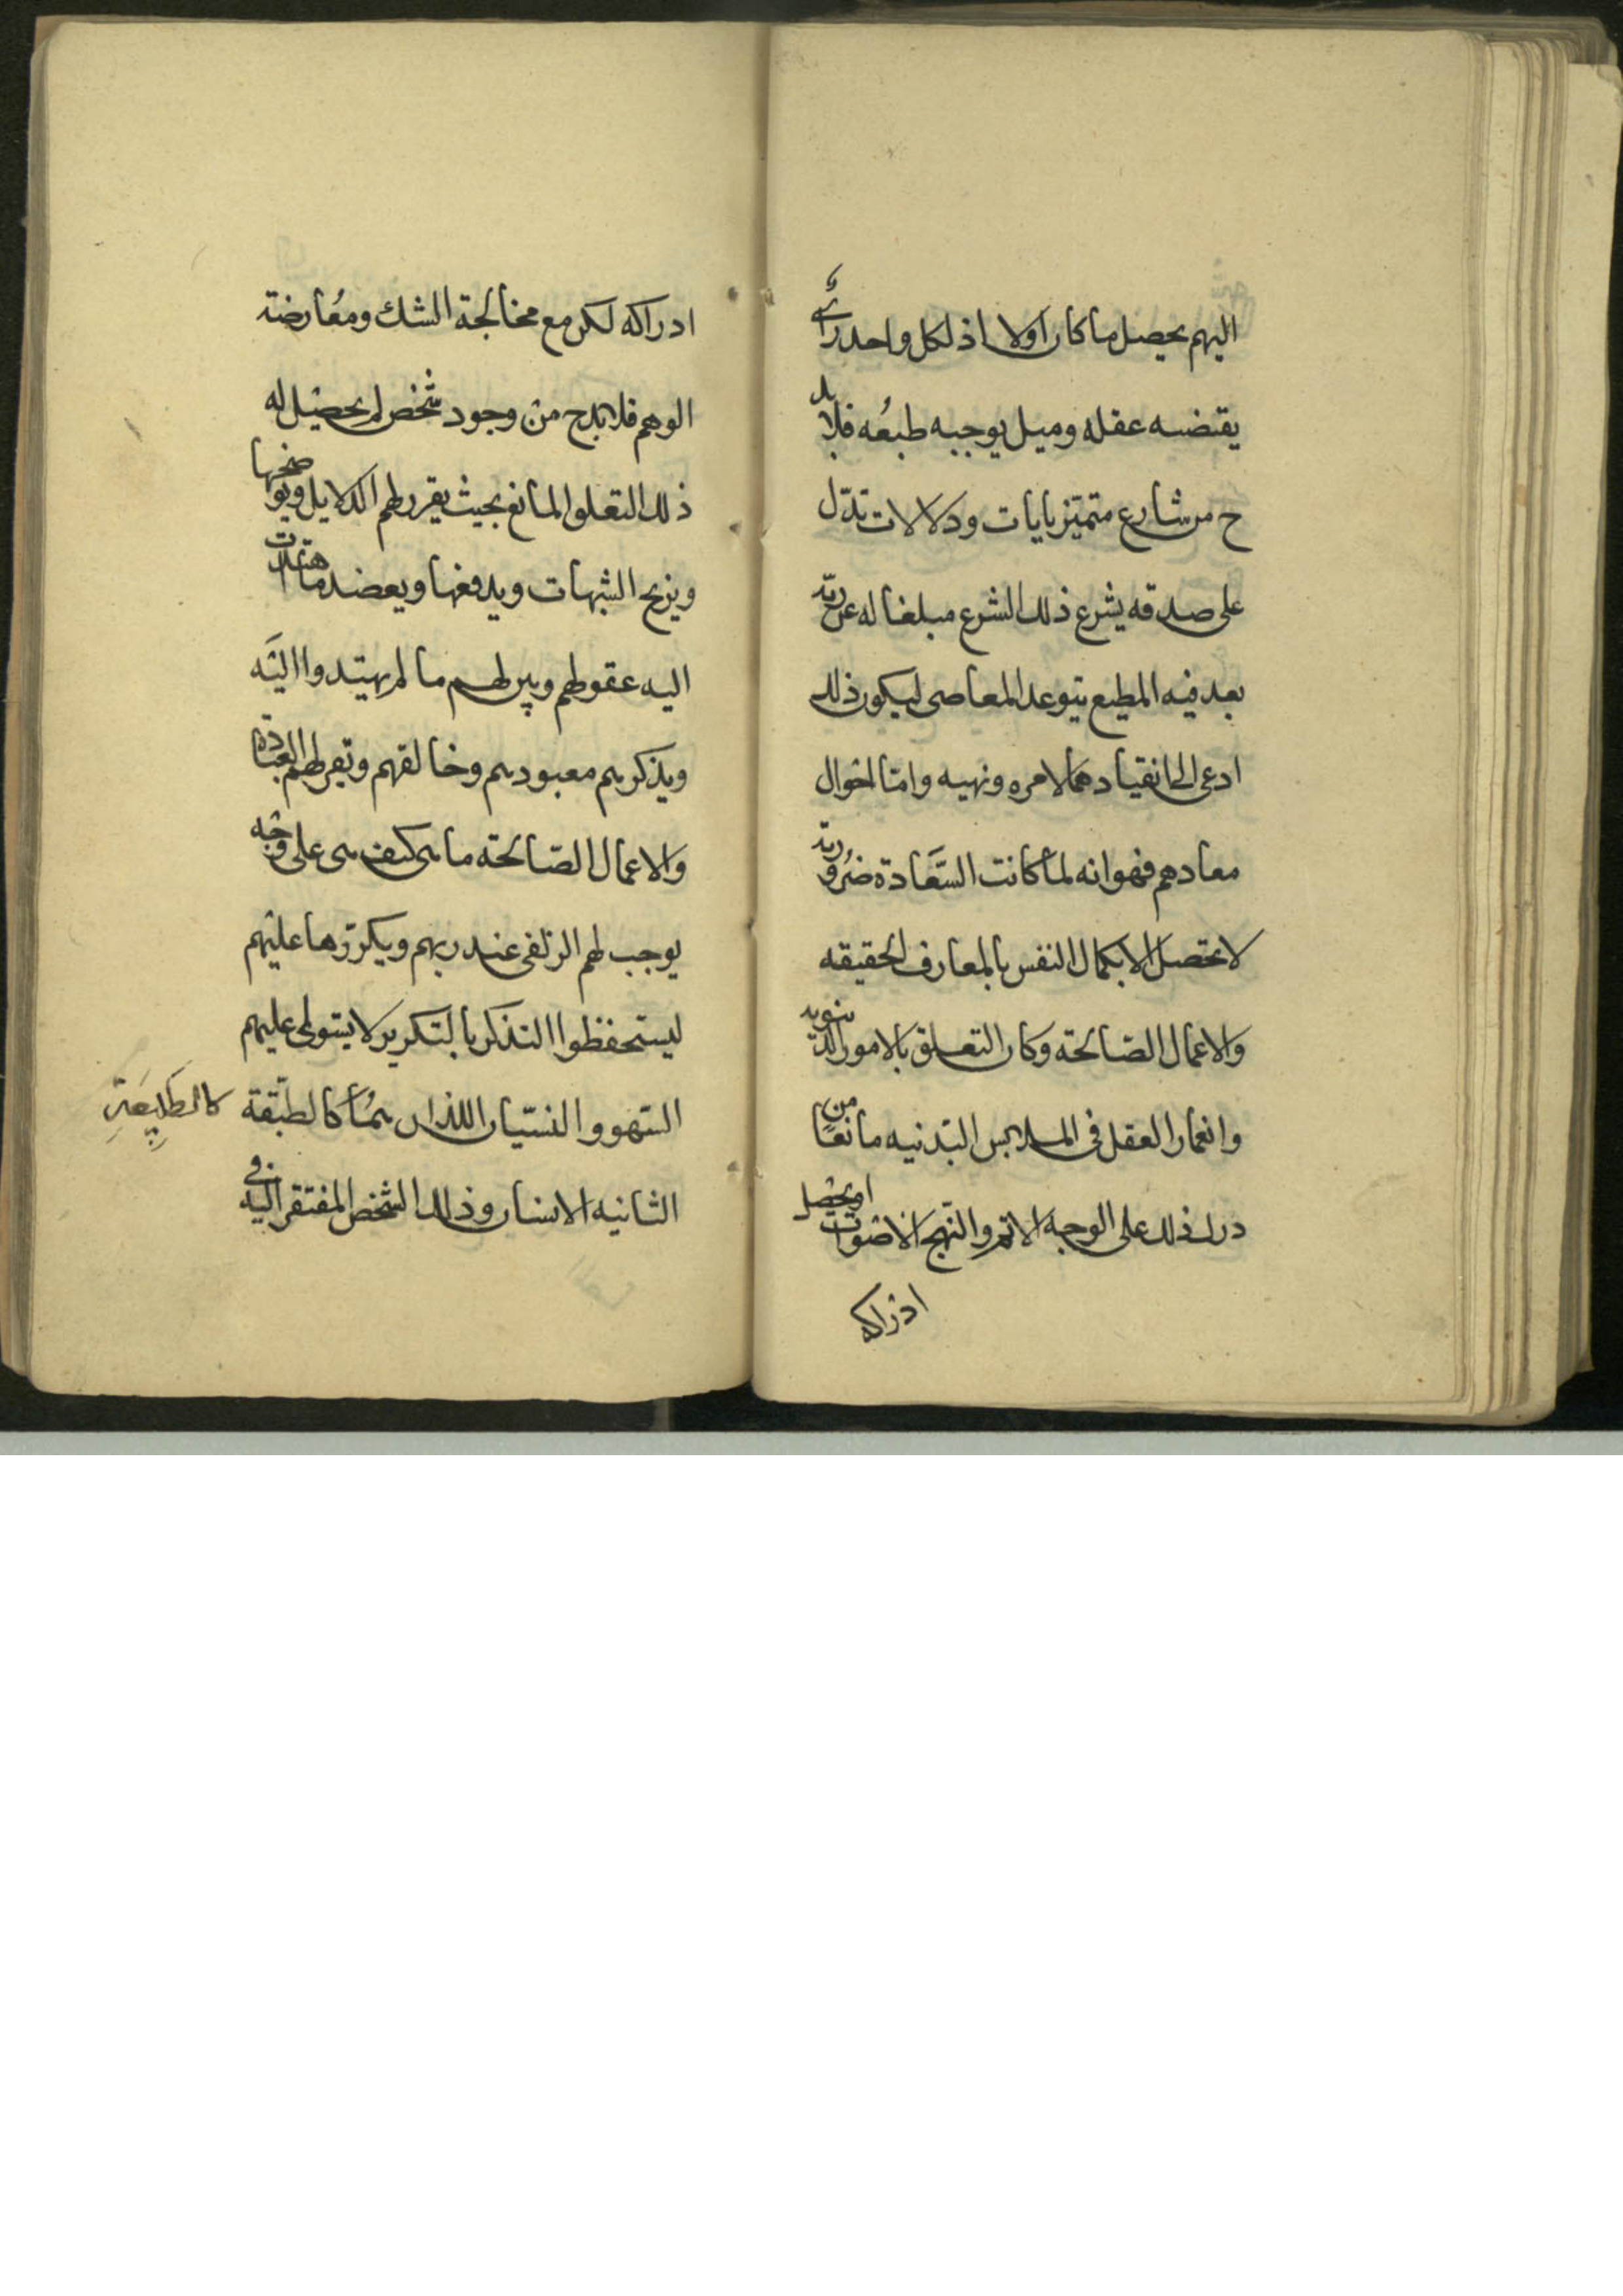 اليهم يحصل ما كان اولا اذ لكل واحد رائ
يقتضيه عقله وميل يوجبه طبعه فلا بد
ح من شارع متميز بايات ودلالات تدل
على صدقه يشرع ذلك الشرع مبلغا له عن ربه
يعد فيه المطيع يتوعد المعاصى ليكون ذلك
ادعى الى انقيادهم لامره ونهيه واما احوال
معادهم فهو انه لما كانت السعادة ضرورية
لا تحصل الا بكمال النفس بالمعارف الحقيقه
والاعمال الصالحة وكان التعلق بالامور الدنيويه
وانغمار العقل فى الملابس البدنيه مانعا من
درك ذلك على الوجه الاتم والنهج الاصوب او يحصل
ادراكه
ادراكه لكن مع مخالجة الشك ومعارضة
الوهم فلا بد ح من وجود شخص لم يحصل له
ذلك التعلق المانع بحيث يقرر لهم الدلايل ويوضحها
ويزيح الشبهات ويدفعها ويعضد ما اهتدت
اليه عقولهم ويبين لهم ما لم يهتدوا اليه
ويذكرهم معبودهم وخالقهم وتقرر لهم العبادة
والاعمال الصالحة ما هى كيف هى على وجه
يوجب لهم الزلفى عند ربهم ويكررها عليهم
ليستحفظوا التذكر بالتكرير لا يستولى عليهم
السهو والنسيان اللذان هما كالطبقة
كالطبيعة
الثانيه الانسان وذلك الشخص المفتقر اليه فى